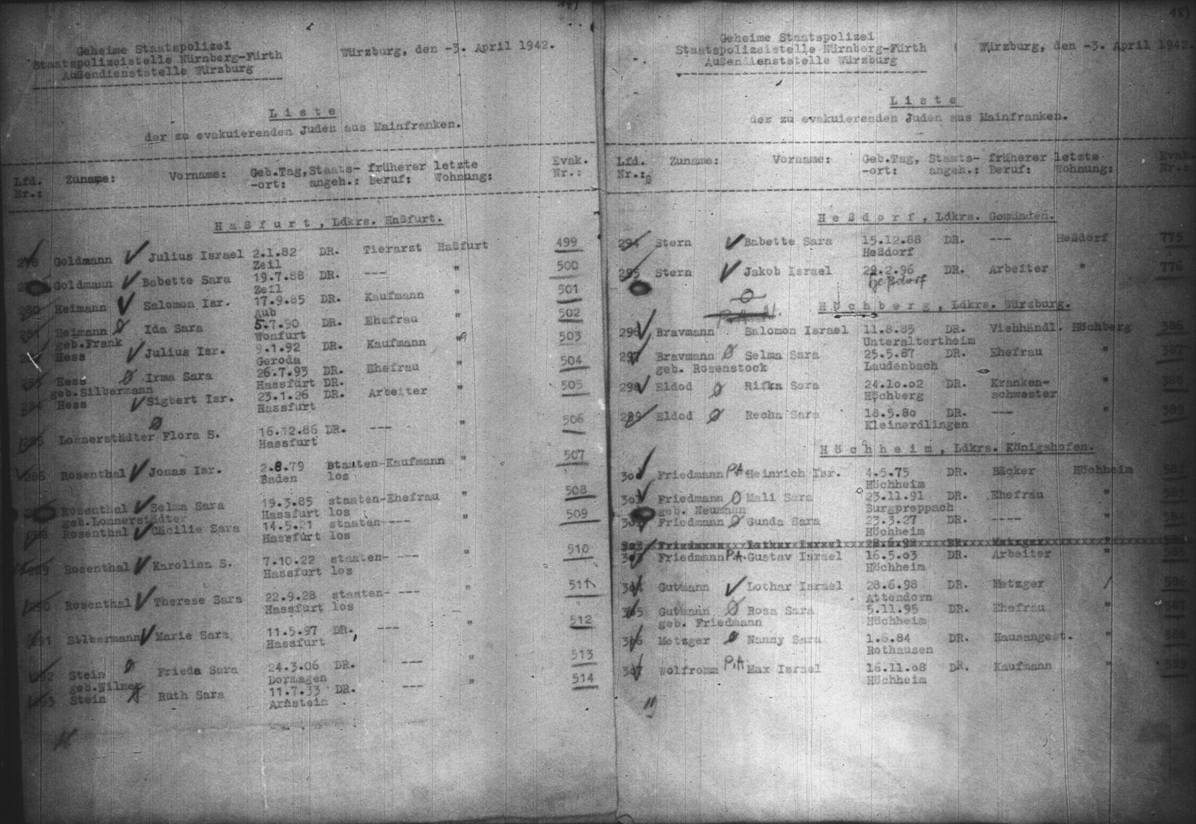 Geheime Staatspolizei
Staatspolizeistelle Nürnberg-Fürth
Außendienststelle Würzburg
Würzburg, den -3. April 1942.
Liste
der zu evakuierenden Juden aus Mainfranken.
Lfd. Nr.: Zuname: Vorname: Geb.Tag, -ort: Staats- angeh.: früherer Beruf: letzte Wohnung: Evak. Nr.:
Haßfurt, Ldkrs. Haßfurt.
Goldmann Julius Israel 2.1.82 DR. Tierarzt Haßfurt 499
Zeil
Goldmann Babette Sara 19.7.88 DR. --- " 500
Zeil
Heimann Salomon Isr. 17.9.85 DR. Kaufmann " 501
Aub
Heimann Ida Sara 5.7.90 DR. Ehefrau " 502
geb.Frank Wonfurt
Hess Julius Isr. 9.1.92 DR. Kaufmann " 503
Geroda
Hess Irma Sara 26.7.93 DR. Ehefrau " 504
geb.Silbermann Hassfurt DR.
Hess Sigbert Isr. 23.1.26 DR. Arbeiter " 505
Hassfurt
Lonnerstädter Flora S. 16.12.86 DR. --- " 506
Hassfurt
Rosenthal Jonas Isr. 2.8.79 Staaten-Kaufmann " 507
Baden los
Rosenthal Selma Sara 19.3.85 staaten-Ehefrau " 508
geb.Lonnerstädter Hassfurt los
Rosenthal Cäcilie Sara 14.5.21 staaten- --- " 509
Hassfurt los
Rosenthal Karolina S. 7.10.22 staaten- --- " 510
Hassfurt los
Rosenthal Therese Sara 22.9.28 staaten- --- " 511
Hassfurt los
Silbermann Marie Sara 11.5.97 DR. --- " 512
Hassfurt
Stein Frieda Sara 24.3.06 DR. --- " 513
Dormagen
Stein Ruth Sara 11.7.33 DR. --- " 514
Arnstein
Geheime Staatspolizei
Staatspolizeistelle Nürnberg-Fürth
Außendienststelle Würzburg
Würzburg, den -3. April 1942.
Liste
der zu evakuierenden Juden aus Mainfranken.
Lfd. Nr.: Zuname: Vorname: Geb.Tag, -ort: Staats- angeh.: früherer Beruf: letzte Wohnung:
Heßdorf, Ldkrs. Gemünden.
294 Stern Babette Sara 15.12.88 DR. --- Heßdorf 775
Heßdorf
295 Stern Jakob Israel 29.2.96 DR. Arbeiter " 776
Heßdorf
Höchberg, Ldkrs. Würzburg.
296 Bravmann Salomon Israel 11.8.85 DR. Viehhändl. Höchberg
Unteraltertheim
297 Bravmann Selma Sara 25.5.87 DR. Ehefrau "
geb. Rosenstock Laudenbach
298 Eldod Rifka Sara 24.10.02 DR. Kranken- "
Höchberg schwester
299 Eldod Recha Sara 18.5.80 DR. --- "
Kleinerdlingen
Höchheim, Ldkrs. Königshofen.
Friedmann PA Heinrich Isr. 4.5.75 DR. Bäcker Höchheim
Höchheim
Friedmann Mali Sara 23.11.91 DR. Ehefrau "
geb. Neumann Burgpreppach
Friedmann Gunda Sara 23.3.27 DR. ---- "
Höchheim
Friedmann PA Gustav Israel 16.5.03 DR. Arbeiter "
Höchheim
Gutmann Lothar Israel 28.6.98 DR. Metzger
Attendorn
Gutmann Rosa Sara 5.11.95 DR. Ehefrau "
geb. Friedmann Höchheim
Metzger Nanny Sara 1.6.84 DR. Hausangest. "
Rothausen
Wolfromm PA Max Israel 16.11.08 DR. Kaufmann "
Höchheim